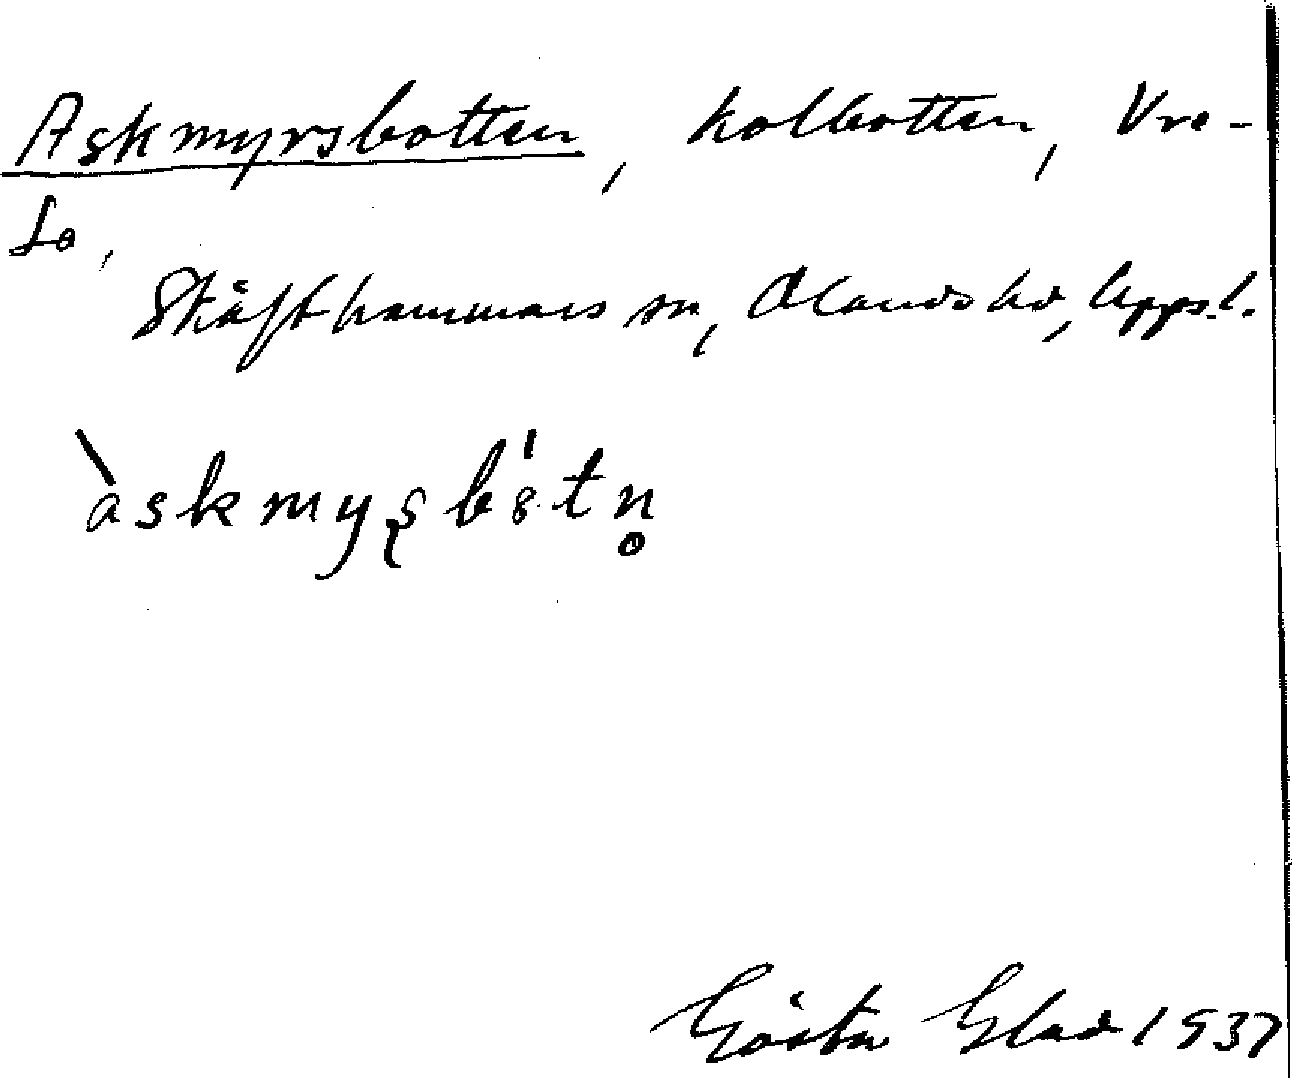 Askmyrsbotten, kolbotten, Vre-
ta,
Skäfthammars sn, Olands hd, Upps.l.
àskmyʂbòtn̥
Gösta Glad 1937